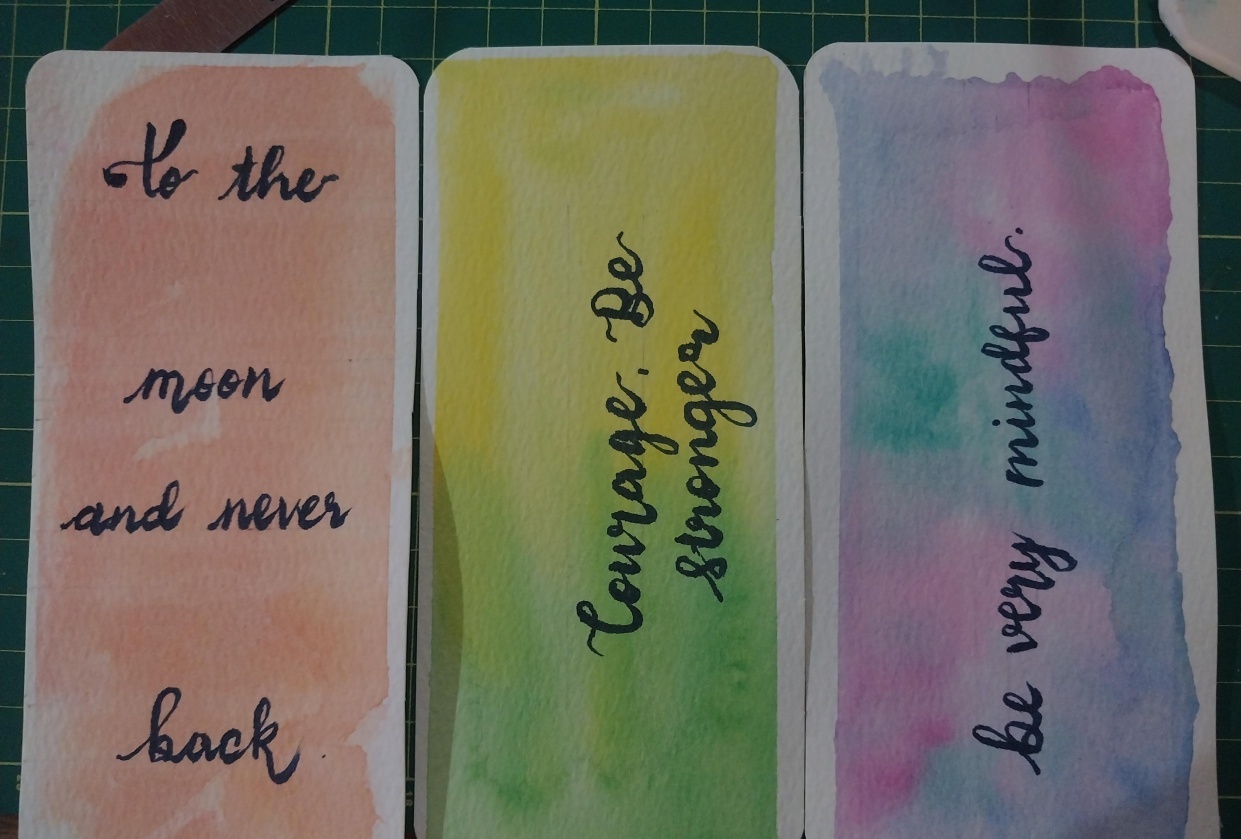 To the
moon
and never
back.
Courage. Be
stronger
be very mindful.